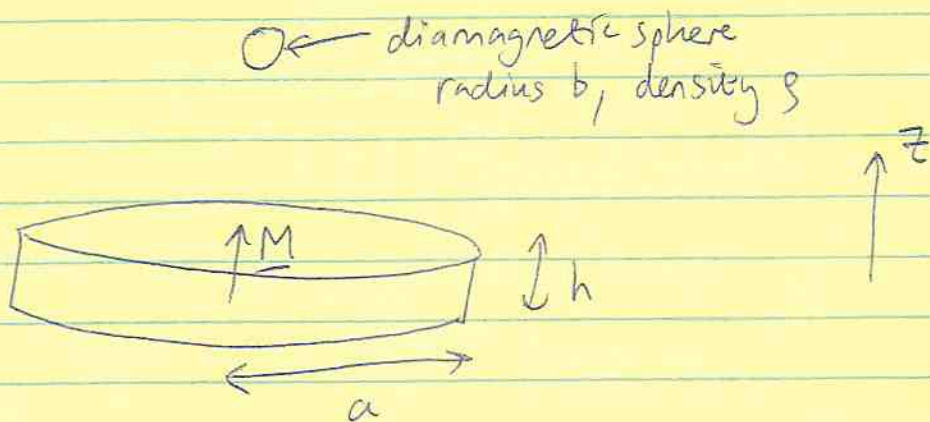 diamagnetic sphere
radius b, density ρ
z
M
h
a